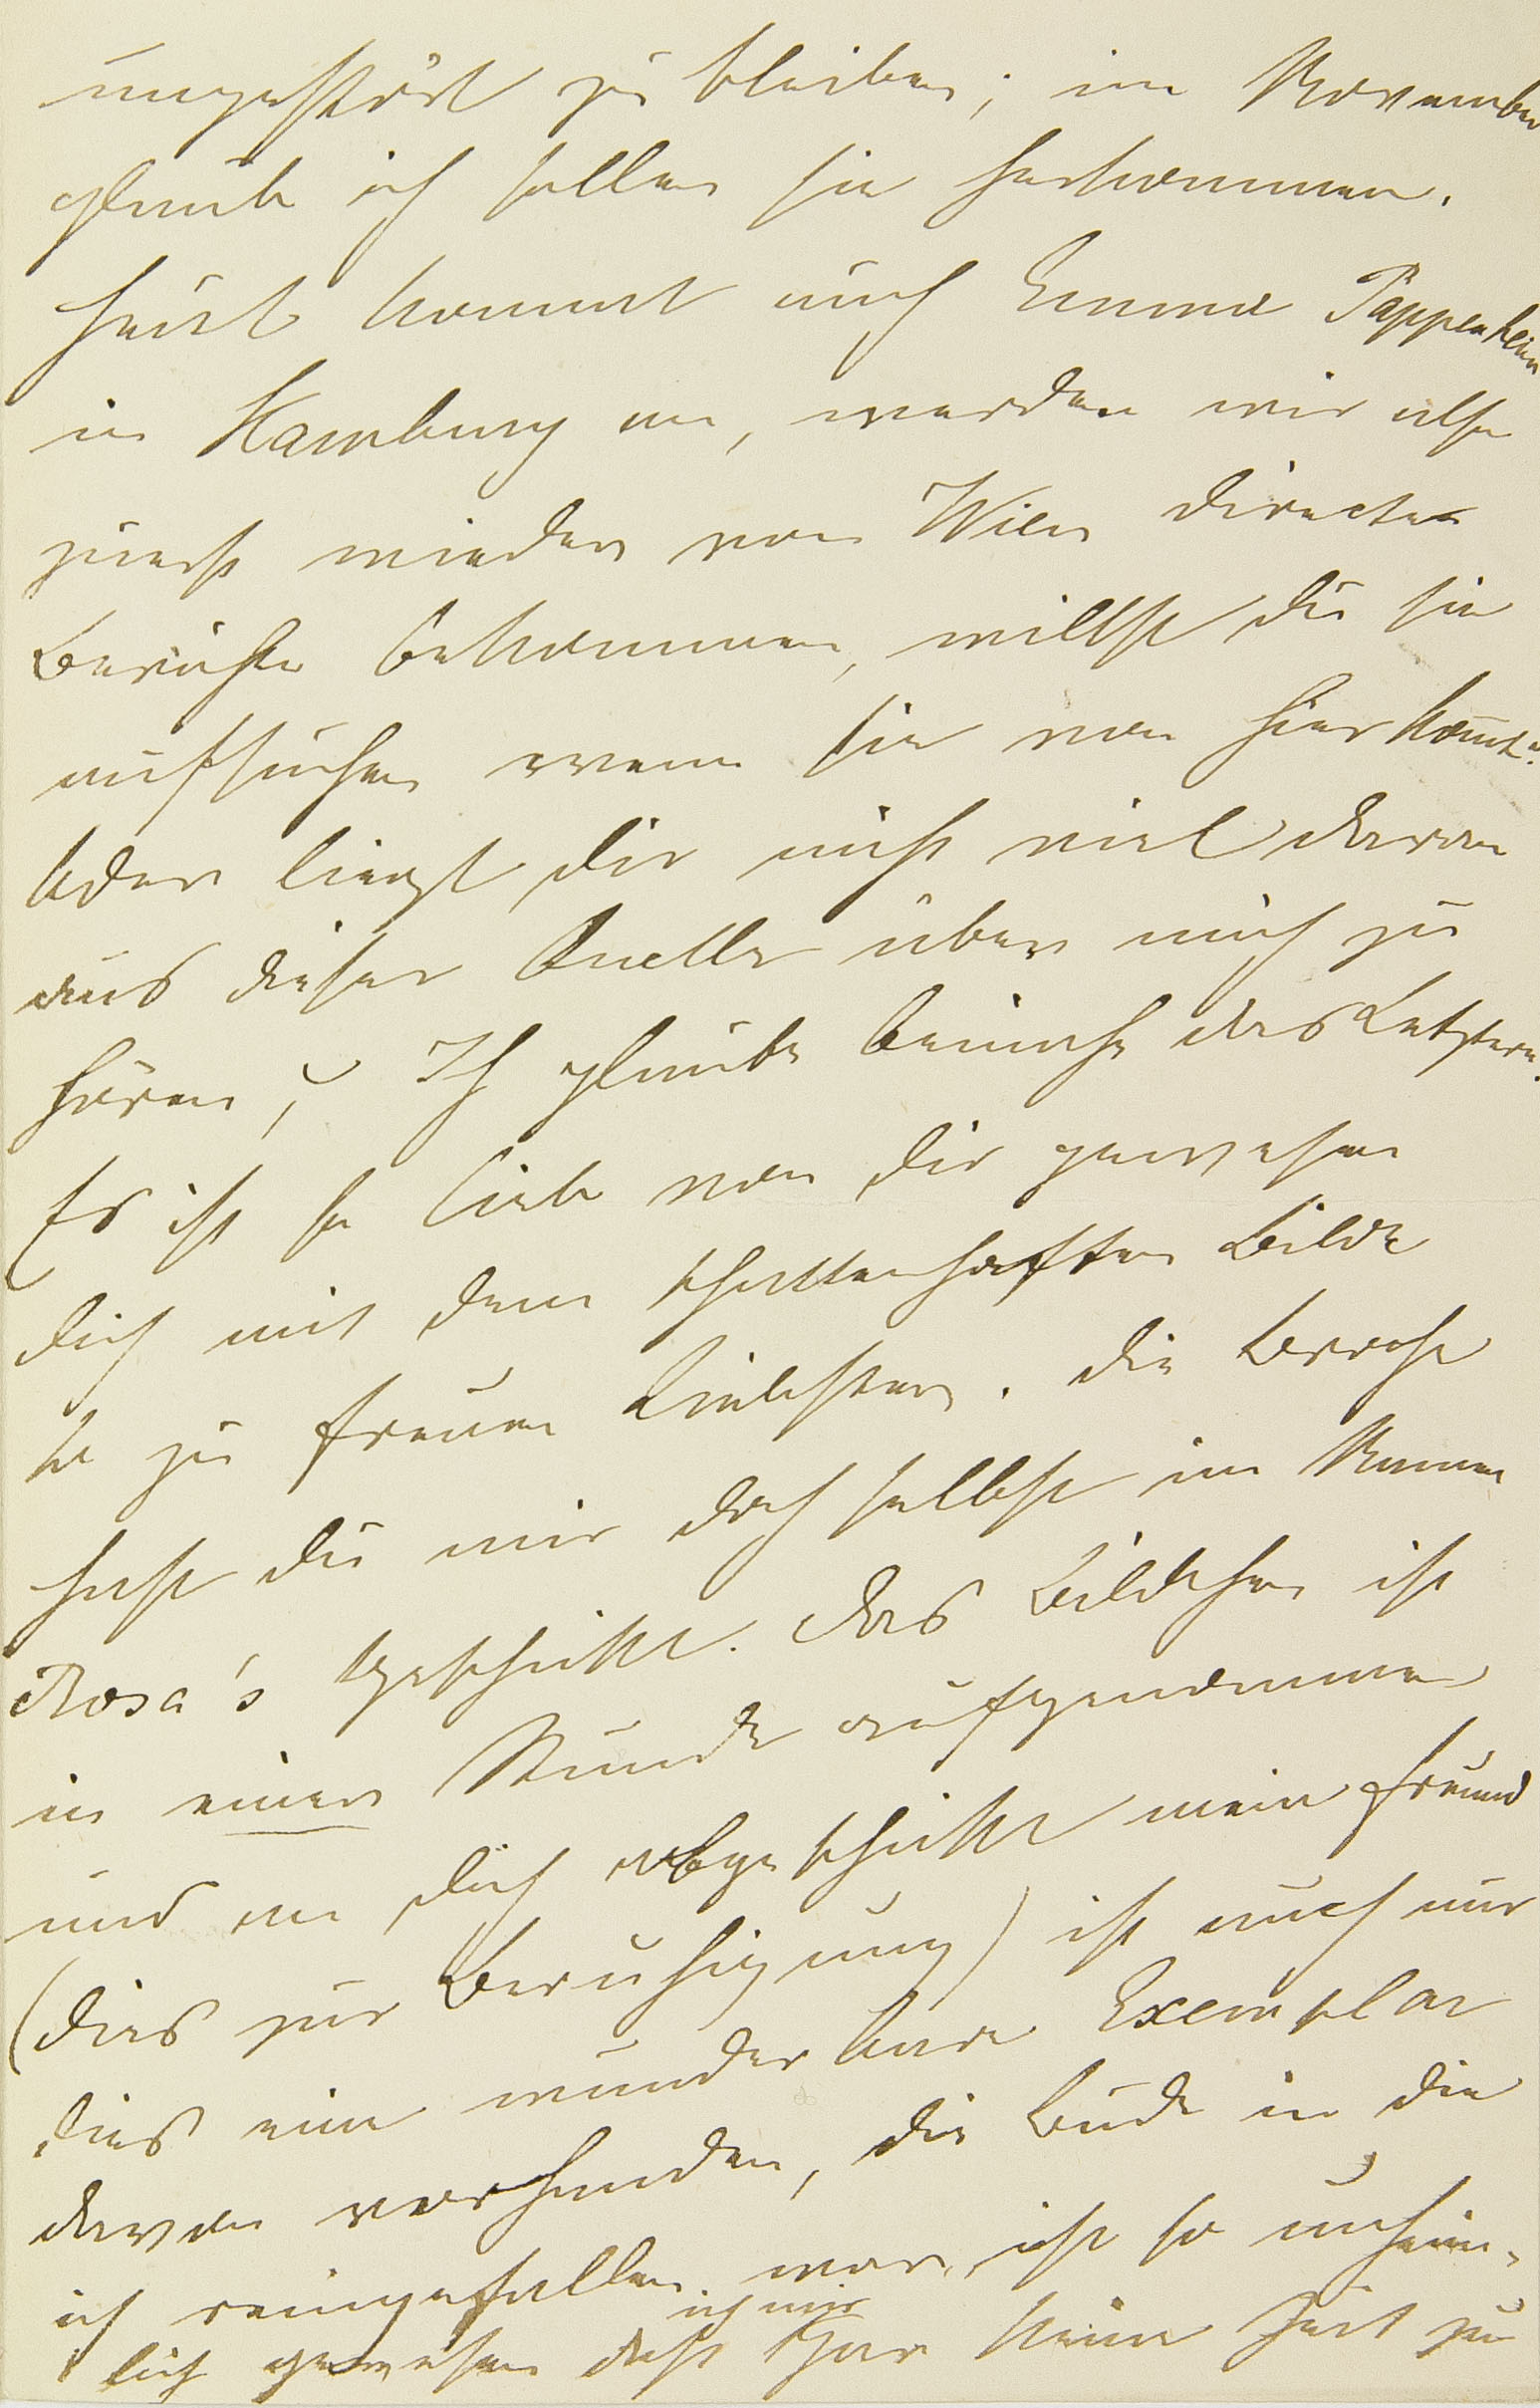 ungestört zu bleiben; im November
glaub ich sollen sie herkommen.
Heut kommt auch Emma Pappenheim
in Hamburg an, werden wir also
zuerst wieder von Wien directe
Berichte bekommen, willst Du sie
aufsuchen wenn sie von hier kom̄t?
Oder liegt Dir nicht viel daran
aus dieser Quelle über mich zu
hören? Ich glaube beinahe das Letztere.
Es ist so lieb von Dir gewesen
Dich mit dem schattenhaften Bilde
so zu freuen Liebster. Die
hast Du mir doch selbst im Namen
Rosa's geschickt. Das Bildchen ist
in einer Stunde aufgenommen
und an Dich abgeschickt mein Freund
(dies zur Beruhigung) ist auch nur
dies eine wunderbare Exemplar
davon vorhanden, die Bude in die
ich reingefallen war, ist so unheim-
lich gewesen daß ich mir gar keine Zeit zu